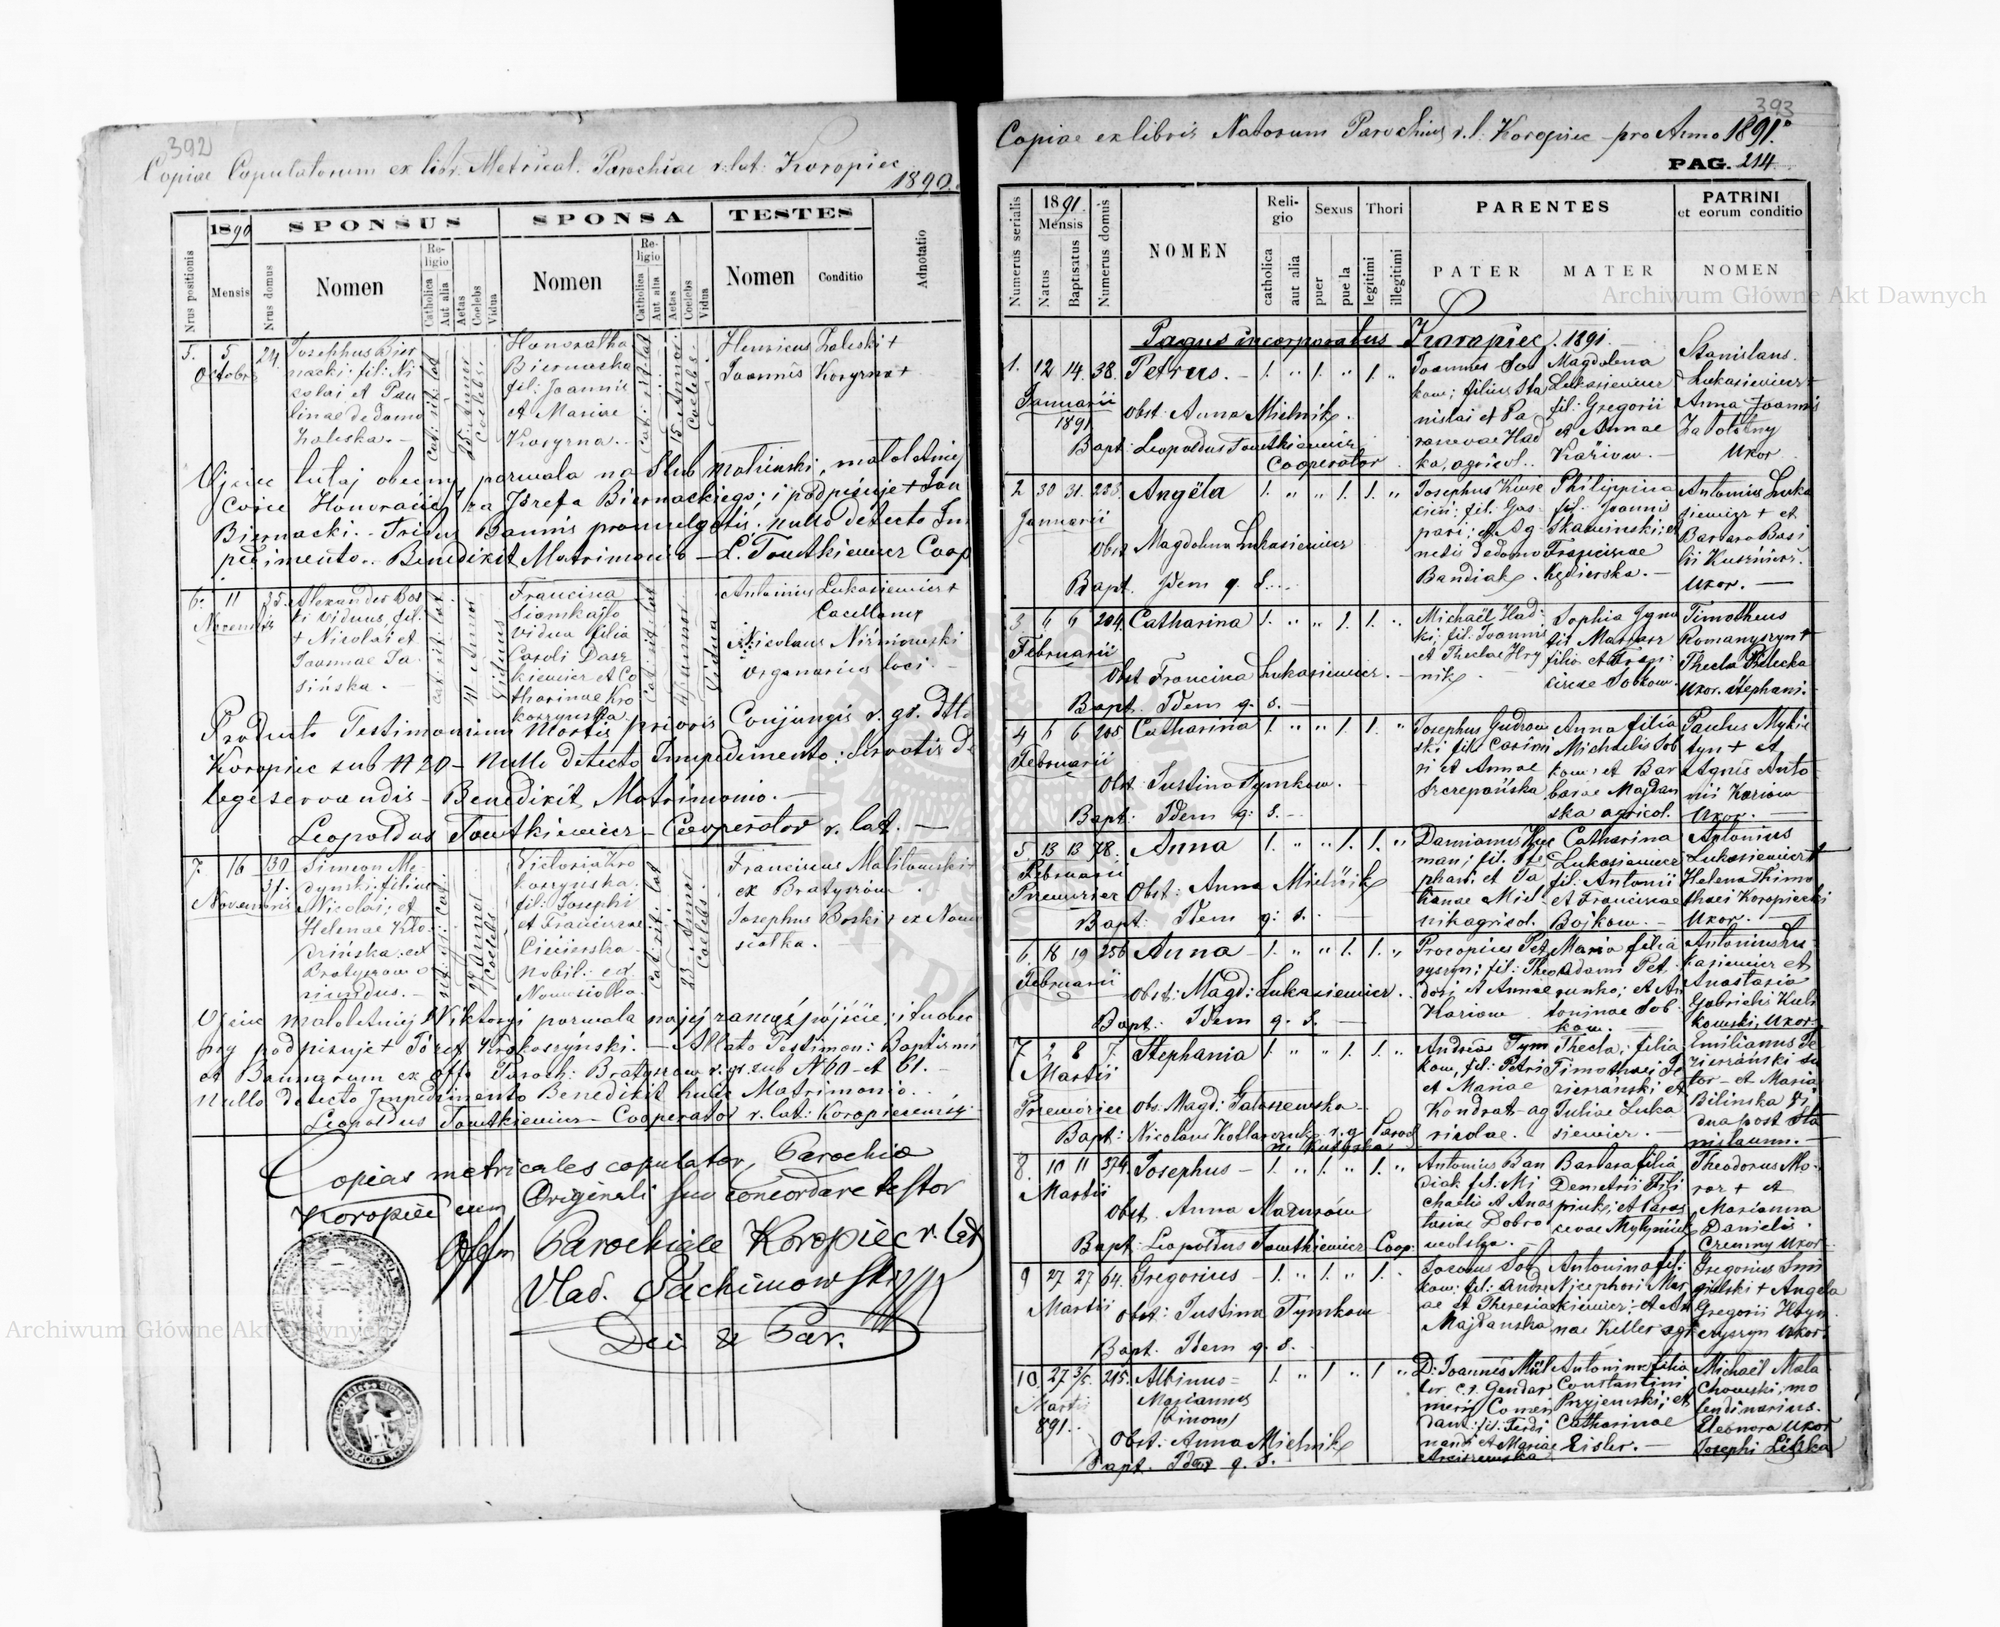 392
Copiae Copulatorum ex libr. Metrical. Parochiae r. lat. Koropiec
1890.
1890
SPONSUS
SPONSA
TESTES
Nrus positionis
Mensis
Nrus domus
Nomen
Religio
Catholica
Aut alia
Aetas
Coelebs
Vidua
Nomen
Religio
Catholica
Aut alia
Aetas
Coelebs
Vidua
Nomen
Conditio
Adnotatio
5.
5
Octobris
24
Josephus Bier
nacki: fil: Ni
colai et Pau
linae de domo
Zaleska. -
Honoratha
Biernacka
fil: Joannis
et Mariae
Kosyrna.
Henricus Zaleski +
Joannis Kosyrna +
Ojciec tutaj obecny pozwala na Ślub małżeński, małoletniej
Córce Honoracie, za Józefa Biernackiego; i podpisuje + Jan
Biernacki. - Tribus Bannis promulgatis. Nullo detecto Im
pedimento. Benedixit Matrimonio - L. Tomtkiewicz Coop
6.
11
Novembris
35.
Alexander
ki viduus, fil.
+ Nicolai et
Joannae Ja
sińska. -
Francisca
vidua filia
Caroli Dasz
kiewicz et Ca
tharinae Kro
koszynska.
Antonius Lukasiewicz +
Nicolaus Niźniowski
Organarius loci -
Producto Testimonium Mortis prioris Conjungis r. gr. dtto
Koropiec sub N 20 - Nullo detecto Impedimento: Servatis de
lege servandis - Benedixit Matrimonio. -
Leopoldus Tomtkiewicz - Cooperator r. lat. -
7.
16
Novembris
130
31.
Simeon Me
dynski: filius
Nicolai; et
Helenae Kło
Bratyszow o
riundus. -
Victoria Kro
koszynska.
fil: Josephi
et Franciscae
Cicińska
nobil: ex
Nowosiołka.
Franciscus
ex Bratyszów
Josephus Boski + ex Nowo
siołka.
Ojciec małoletniej Wiktoryi pozwala na jej zamąż pójście; i tu obec
ny podpisuje + Józef Krokoszynski. - Allato Testimon: Baptismi
et Bannorum ex offo Paroch: Bratyszow r. gr. sub N 60 - et 61. -
Nullo detecto Impedimento Benedixit huic Matrimonio. -
Leopoldus Tomtkiewicz - Cooperator r. lat: Koropiecensis -
Copias metricales copulator, Parochia
Koropiec cum Originali suo concordare testor
Offm Parochiale Koropiec r. lat
Vlad. Sachimowski
Dec & Par.
393
Copiae ex libris Natorum Parochiae r. l. Koropiec pro Anno 1891.
PAG. 214
Numerus serialis
1891.
Mensis
Natus
Baptisatus
Numerus domus
NOMEN
Religio
catholica
aut alia
Sexus
puer
puella
Thori
legitimi
illegitimi
PARENTES
PATER
MATER
PATRINI
et eorum conditio
NOMEN
Pagus incorporatus Koropiec. 1891.
1.
12
14.
38.
Januarii
1891
Petrus. -
Obst: Anna Mielnik.
Bapt: Leopoldus Tomtkiewicz
Cooperator.
Joannes Sob
kow; filius Sta
nislai et Pa
rascevae Had
ka, agricol..
Magdalena
Lukasiewicz
fil: Gregorii
et Annae
Kariow. -
Stanislaus
Lukasiewicz +
Anna Joannis
Zabolotny
Uxor
2
30
31.
238.
Januarii
Angela
Obst Magdalena Lukasiewicz
Bapt. Idem q. s. -
Josephus
fil: Gas
pari; et Ag
netis de domo
Bandiak.
Philippina
fil: Joannis
Skawinski; et
Franciscae
Kędierska. -
Antonius Luka
siewicz + et
Barbara Basi
lii
Uxor. -
3
6
6
204.
Februarii
Catharina
Obst Francisca Lukasiewicz. -
Bapt. Idem q. s. -
Michaël Had
ki: fil: Joannis
et Theclae Hry
nik. -
Sophia
fil:
filia et Fran
ciscae Sobkow.
Timotheus
Romanyszyn +
Thecla Bilecka
Uxor. Stephani.
4
6
6
205
Februarii
Catharina
Obst: Justina Tymkow.
Bapt: Idem q: s. -
Josephus Gudrow
ski fil: Casimi
ri et Annae
Szczepańska
Anna filia
Michaelis Sob
kow; et Bar
barae Majdan
ska agricol.
Paulus Myki
tyn + et
Agnis Anto
nii Kariow
Uxor. -
5
13
13
78.
Februarii
Anna
Obst: Anna Mielnik
Bapt: Idem q: s. -
Damianus
man; fil. Ste
phani et Ta
tianae Miel
nik agricol.
Catharina
Lukasiewicz
fil: Antonii
et Franciscae
Bojkow. -
Antonius
Lukasiewicz +
Helena Thimo
thaei Koropiecki
Uxor. -
6.
18
19
256
Februarii
Anna
Obst: Magd: Lukasiewicz.
Bapt: Idem q. s. -
Procopius Pet
ryszyn; fil: Theo
dori et Annae
Kariow
Maria filia
Adami Pet
runko; et An
toninae Sob
kow. -
Antonius Lu
kasiewicz et
Anastasia
Gabrielis Kuli
kowski, Uxor
7
2
8
7.
Martii
Stephania
Obs. Magd: Galaszewska -
Bapt: Nicolaus Kotlarczuk r. g. Paroch
Andreas Tym
kow, fil: Petri
et Mariae
Kondrat - ag
ricolae. -
Thecla; filia
Timothaei Je
zierzański et
Juliae Luka
siewicz. -
Emilianus Je
zierzański su
tor - et Maria
Bilinska Vi
dua post Sta
nislaum. -
8.
10
11
374.
Martii
Josephus -
Obst. Anna Mazurów
Bapt: Leopoldus Tomtkiewicz Coop.
Antonius Ban
diak fil: Mi
chaelis et Anas
tasiae Dobro
wolska. -
Barbara filia
Demetrii Fili
pinki; et Paras
cevae
Theodorus Mo
roz + et
Marianna
Danielis
Cremny Uxor -
9
27
27
64.
Martii
Gregorius -
Obst: Justina Tymkow
Bapt. Idem q. s.
Jacobus Sob
kow: fil: Andre
ae et Theresiae
Majdanska
Antonina fil:
Nicephori Mas
kiewicz; et An
nae Keller agr
Gregorius Smi
gielski + Angela
Gregorii Hryn
czyszyn Uxor
10
27
3/5.
215.
Martii
891.
Albinus =
Marianus
(binom)
Obst: Anna Mielnik
Bapt. Idem q. s.
D: Joannes Mül
ler c. r. Gendar
meriæ Comen
dant: fil: Ferdi
nandi et Mariae
Antonina filia
Constantini
Przyjemski; et
Catharinae
Eisler. -
Michaël Mala
chowski, mo
lendinarius.
Eleonora uxor
Josephi Liska
Archiwum Główne Akt Dawnych
Archiwum Główne Akt Dawnych